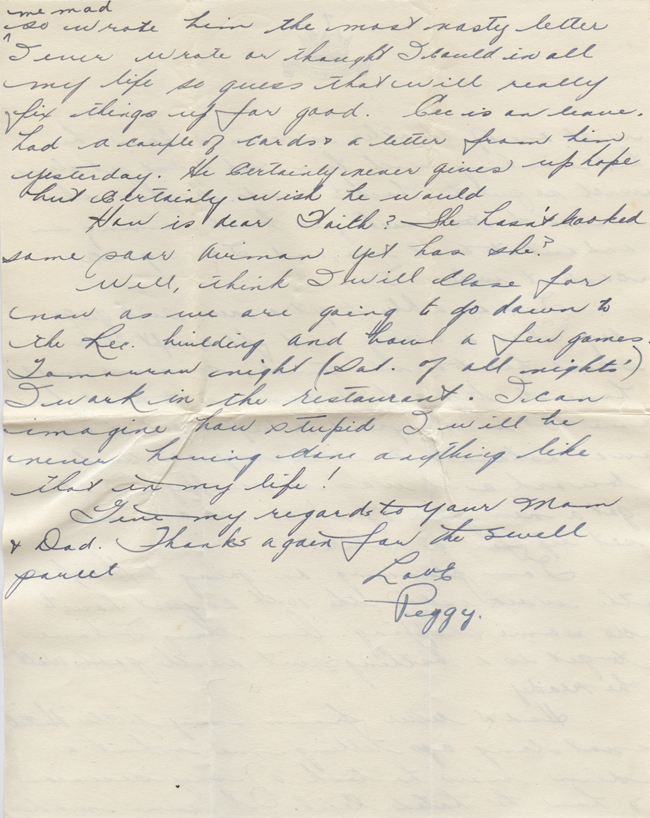 me mad
^so wrote him the most nasty letter
I ever wrote or thought I could in all
my life so guess that will really
fix things up for good. Cec is on leave.
Had a couple of cards & a letter from him
yesterday. He certainly never gives up hope
but certainly wish he would
How is dear Faith? She hasn't hooked
some poor airman yet has she?
Well, think I will close for
now as we are going to go down to
the Rec. building and bowl a few games.
Tomorrow night (Sat. of all nights!)
I work in the restaurant. I can
imagine how stupid I will be
never having done anything like
that in my life!
Give my regards to your Mom
& Dad. Thanks again for the swell
parcel
Love
Peggy.